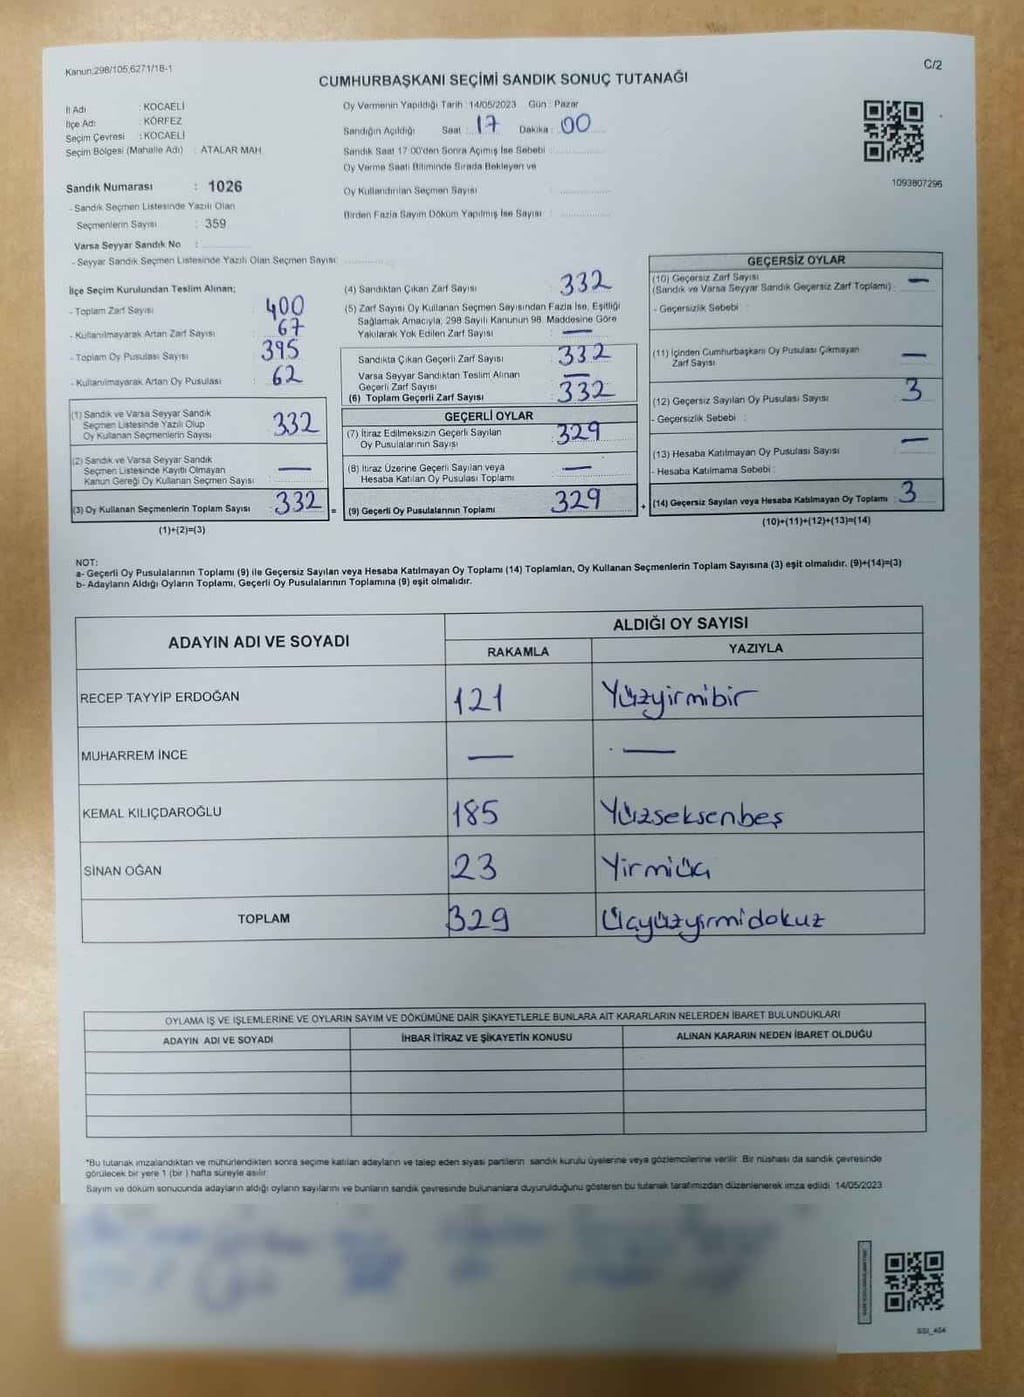 Kanun:298/105,6271/18-1
C/2
CUMHURBAŞKANI SEÇİMİ SANDIK SONUÇ TUTANAĞI
İl Adı : KOCAELİ
İlçe Adı : KÖRFEZ
Seçim Çevresi : KOCAELİ
Seçim Bölgesi (Mahalle Adı) : ATALAR MAH.
Sandık Numarası : 1026
- Sandık Seçmen Listesinde Yazılı Olan
Seçmenlerin Sayısı : 359
Varsa Seyyar Sandık No :
- Seyyar Sandık Seçmen Listesinde Yazılı Olan Seçmen Sayısı:
Oy Vermenin Yapıldığı Tarih : 14/05/2023 Gün : Pazar
Sandığın Açıldığı Saat : 17 Dakika : 00
Sandık Saat 17:00'den Sonra Açımış İse Sebebi :
Oy Verme Saati Bitiminde Sırada Bekleyen ve
Oy Kullandırılan Seçmen Sayısı :
Birden Fazla Sayım Döküm Yapılmış İse Sayısı :
1093807296
İlçe Seçim Kurulundan Teslim Alınan;
- Toplam Zarf Sayısı : 400
- Kullanılmayarak Artan Zarf Sayısı : 67
- Toplam Oy Pusulası Sayısı : 395
- Kullanılmayarak Artan Oy Pusulası : 62
(1) Sandık ve Varsa Seyyar Sandık
Seçmen Listesinde Yazılı Olup
Oy Kullanan Seçmenlerin Sayısı : 332
(2) Sandık ve Varsa Seyyar Sandık
Seçmen Listesinde Kayıtlı Olmayan
Kanun Gereği Oy Kullanan Seçmen Sayısı : —
(3) Oy Kullanan Seçmenlerin Toplam Sayısı : 332 =
(1)+(2)=(3)
(4) Sandıktan Çıkan Zarf Sayısı : 332
(5) Zarf Sayısı Oy Kullanan Seçmen Sayısından Fazla İse, Eşitliği
Sağlamak Amacıyla; 298 Sayılı Kanunun 98. Maddesine Göre
Yakılarak Yok Edilen Zarf Sayısı : —
Sandıkta Çıkan Geçerli Zarf Sayısı : 332
Varsa Seyyar Sandıktan Teslim Alınan
Geçerli Zarf Sayısı : —
(6) Toplam Geçerli Zarf Sayısı : 332
GEÇERLİ OYLAR
(7) İtiraz Edilmeksizin Geçerli Sayılan
Oy Pusulalarının Sayısı : 329
(8) İtiraz Üzerine Geçerli Sayılan veya
Hesaba Katılan Oy Pusulası Toplamı : —
(9) Geçerli Oy Pusulalarının Toplamı : 329 +
GEÇERSİZ OYLAR
(10) Geçersiz Zarf Sayısı
(Sandık ve Varsa Seyyar Sandık Geçersiz Zarf Toplamı) : —
- Geçersizlik Sebebi :
(11) İçinden Cumhurbaşkanı Oy Pusulası Çıkmayan
Zarf Sayısı : —
(12) Geçersiz Sayılan Oy Pusulası Sayısı : 3
- Geçersizlik Sebebi :
(13) Hesaba Katılmayan Oy Pusulası Sayısı : —
- Hesaba Katılmama Sebebi :
(14) Geçersiz Sayılan veya Hesaba Katılmayan Oy Toplamı : 3
(10)+(11)+(12)+(13)=(14)
NOT:
a- Geçerli Oy Pusulalarının Toplamı (9) ile Geçersiz Sayılan veya Hesaba Katılmayan Oy Toplamı (14) Toplamları, Oy Kullanan Seçmenlerin Toplam Sayısına (3) eşit olmalıdır. (9)+(14)=(3)
b- Adayların Aldığı Oyların Toplamı, Geçerli Oy Pusulalarının Toplamına (9) eşit olmalıdır.
ADAYIN ADI VE SOYADI
ALDIĞI OY SAYISI
RAKAMLA YAZIYLA
RECEP TAYYİP ERDOĞAN 121 Yüzyirmibir
MUHARREM İNCE — —
KEMAL KILIÇDAROĞLU 185 Yüzseksenbeş
SİNAN OĞAN 23 Yirmiüç
TOPLAM 329 Üçyüzyirmidokuz
OYLAMA İŞ VE İŞLEMLERİNE VE OYLARIN SAYIM VE DÖKÜMÜNE DAİR ŞİKAYETLERLE BUNLARA AİT KARARLARIN NELERDEN İBARET BULUNDUKLARI
ADAYIN ADI VE SOYADI İHBAR İTİRAZ VE ŞİKAYETİN KONUSU ALINAN KARARIN NEDEN İBARET OLDUĞU
*Bu tutanak imzalandıktan ve mühürlendikten sonra seçime katılan adayların ve talep eden siyasi partilerin sandık kurulu üyelerine veya gözlemcilerine verilir. Bir nüshası da sandık çevresinde
görülecek bir yere 1 (bir ) hafta süreyle asılır.
Sayım ve döküm sonucunda adayların aldığı oyların sayılarını ve bunların sandık çevresinde bulunanlara duyurulduğunu gösteren bu tutanak tarafımızdan düzenlenerek imza edildi. 14/05/2023
SSI_404